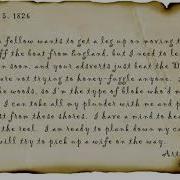 5, 1826
fellow wants to get a leg up on moving t
ff the boat from England, but I need to le
n soon, and your adverts say beat the
re not trying to honey-fuggle anyone.
the woods, so I'm the type of bloke who'd n
I can take all my plunder with me and p
t from these shores. I have a mind to hea
the reel. I am ready to plank down my c
will try to pick up a wife on the way.
Art